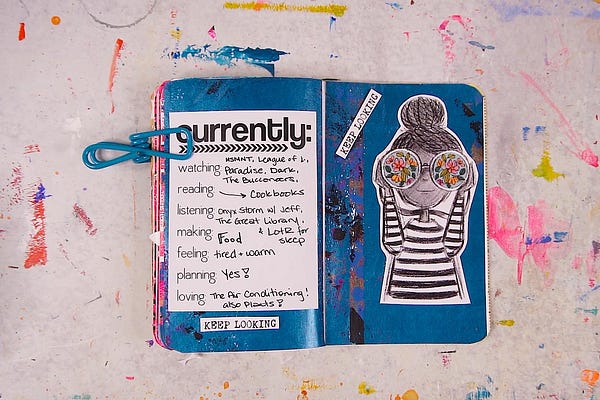 currently:
watching HSMNT, League of L,
Paradise, Dark,
The Buccaneers,
reading → Cookbooks
listening Onyx Storm w/ Jeff,
The Great Library,
& LotR for sleep
making: Food
feeling tired + warm
planning Yes!
loving: The Air Conditioning!
also Plants!
KEEP LOOKING
KEEP LOOKING